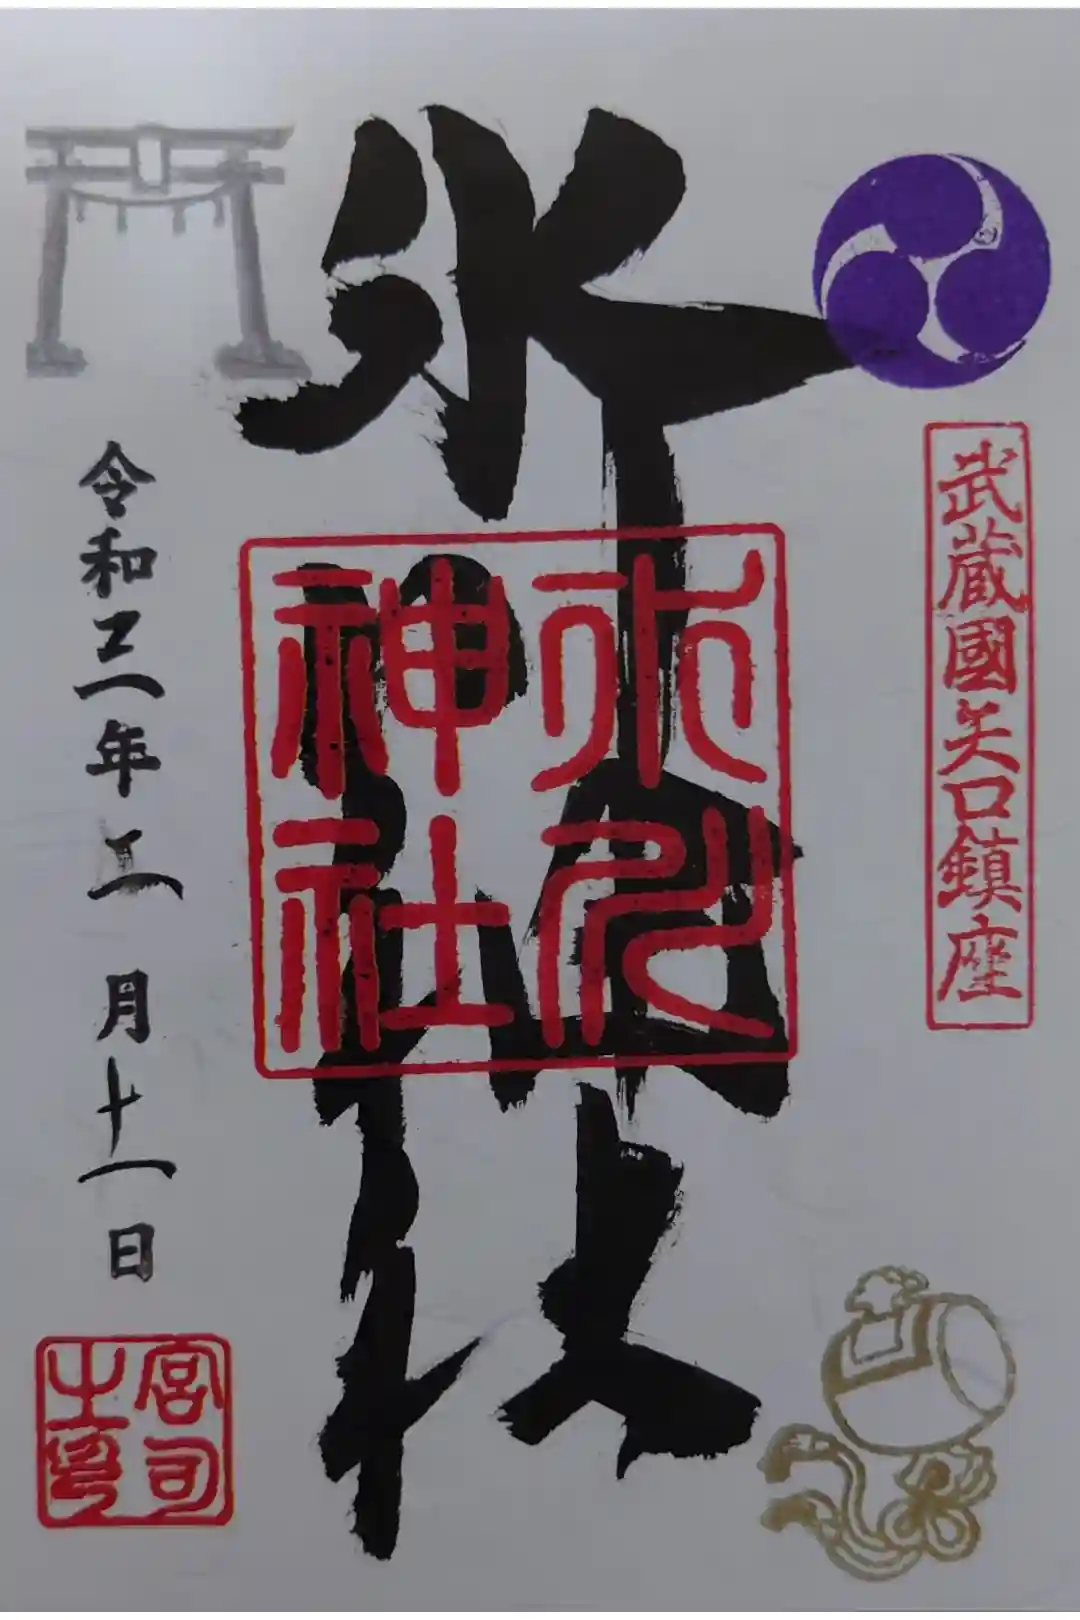 武蔵國矢口鎮座
氷川神社
氷川神社
令和三年二月十一日
宮司之印